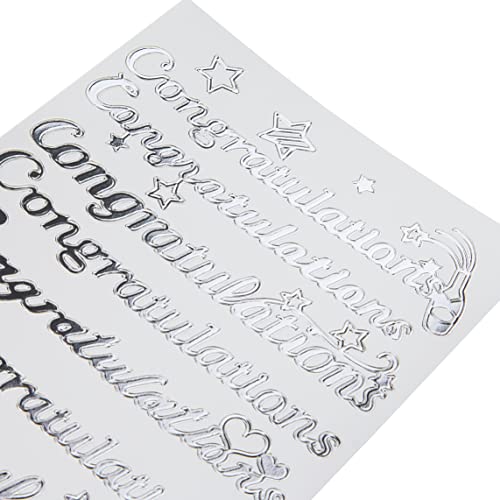 Congratulations
Congratulations
Congratulations
Congratulations
ongratulations
ngratulati